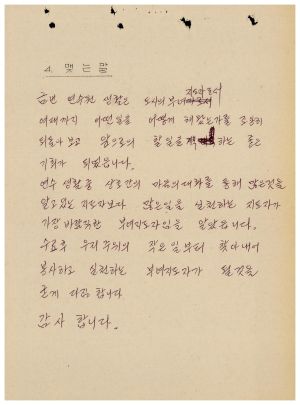 4. 맺는말
금번 연수원 생활은 도시의 부녀지도자로서
여태까지 어떤일을 어떻게 해왔는가를 조용히
되돌아 보고 앞으로의 할일을 하는 좋은
기회가 되었읍니다.
연수 생활중 상호간의 마음의 대화를 통해 많은것을
알고있는 지도자보다 많은일을 실천하는 지도자가
가장 바람직한 부녀지도자임을 알았읍니다.
수료후 우리 주위의 작은일부터 찾아내어
봉사하고 실천하는 부녀지도자가 될것을
굳게 다짐합니다
감사 합니다.